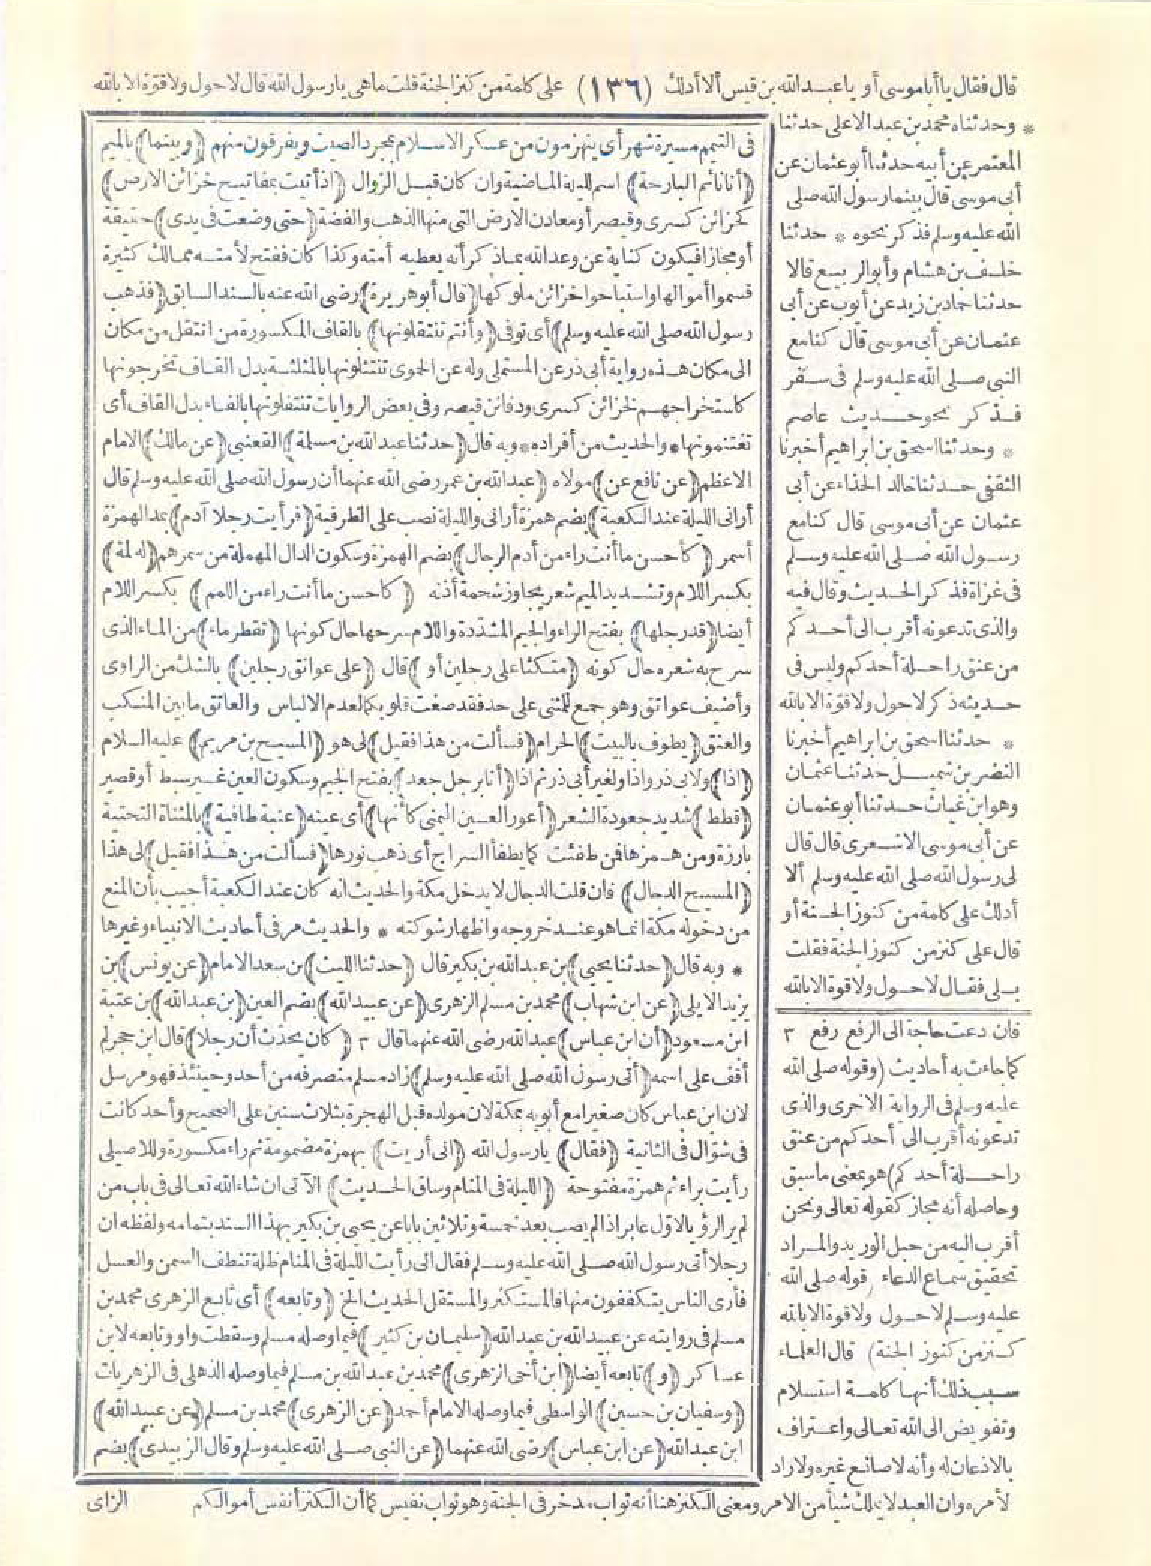 قال فقال يا أبا موسى أو يا عبد الله بن قيس ألا أدلك (١٣٦) على كلمة من كنز الجنة قلت ما هي يا رسول الله قال لا حول ولا قوة الا بالله
* وحدثناه محمد بن عبد الاعلى حدثنا
المعتمر عن أبيه حدثنا أبو عثمان عن
أبي موسى قال بينما رسول الله صلى
الله عليه وسلم فذكر نحوه * حدثنا
خلف بن هشام وأبو الربيع قالا
حدثنا حماد بن زيد عن أيوب عن أبي
عثمان عن أبي موسى قال كنا مع
النبي صلى الله عليه وسلم في سفر
فذكر نحو حديث عاصم
* وحدثنا اسحق بن ابراهيم أخبرنا
الثقفي حدثنا خالد الحذاء عن أبي
عثمان عن أبي موسى قال كنا مع
رسول الله صلى الله عليه وسلم
في غزاة فذكر الحديث وقال فيه
والذي تدعونه أقرب الى أحدكم
من عنق راحلة أحدكم وليس في
حديثه ذكر لا حول ولا قوة الا بالله
* حدثنا اسحق بن ابراهيم أخبرنا
النضر بن شميل حدثنا عثمان
وهو ابن غياث حدثنا أبو عثمان
عن أبي موسى الاشعري قال قال
لي رسول الله صلى الله عليه وسلم ألا
أدلك على كلمة من كنوز الجنة أو
قال على كنز من كنوز الجنة فقلت
بلى فقال لا حول ولا قوة الا بالله
فان دعت حاجة الى الرفع رفع ٣
كما جاءت به أحاديث (وقوله صلى الله
عليه وسلم في الرواية الاخرى والذي
تدعونه أقرب الى أحدكم من عنق
راحلة أحدكم) هو بمعنى ما سبق
وحاصله أنه مجاز كقوله تعالى ونحن
أقرب اليه من حبل الوريد والمراد
تحقيق سماع الدعاء (قوله صلى الله
عليه وسلم لا حول ولا قوة الا بالله
كنز من كنوز الجنة) قال العلماء
سبب ذلك أنها كلمة استسلام
وتفويض الى الله تعالى واعتراف
بالاذعان له وأنه لا صانع غيره ولا راد
لأمره وان العبد لا يملك شيأ من الامر ومعنى الكنز هنا أنه ثواب مدخر في الجنة وهو ثواب نفيس كما أن الكنز أنفس أموالكم
في التيمم مسيرة شهر أي ينهزمون من عسكر الاسلام بمجرد الصيت ويفرقون منهم (وبينما) بالميم
(أنا نائم البارحة) اسم لليلة الماضية وان كان قبل الزوال (اذ أتيت بمفاتيح خزائن الارض)
كخزائن كسرى وقيصر أو معادن الارض التي منها الذهب والفضة (حتى وضعت في يدي) حقيقة
أو مجازا فيكون كناية عن وعد الله بما ذكر أنه يعطيه أمته وكذا كان ففتح لأمته ممالك كثيرة
قسموا أموالها واستباحوا خزائن ملوكها (قال أبو هريرة) رضي الله عنه بالسند السابق (فذهب
رسول الله صلى الله عليه وسلم) أي توفي (وأنتم تنتقلونها) بالقاف المكسورة من انتقل من مكان
الى مكان هذه رواية أبي ذر عن المستملي وله عن الحموي تنتثلونها بالمثلثة بدل القاف تخرجونها
كاستخراجهم لخزائن كسرى ودفائن قيصر وفي بعض الروايات تنتفلونها بالفاء بدل القاف أي
تغتنمونها * والحديث من أفراده * وبه قال (حدثنا عبد الله بن مسلمة) القعنبي (عن مالك) الامام
الاعظم (عن نافع عن) مولاه (عبد الله بن عمر رضي الله عنهما أن رسول الله صلى الله عليه وسلم قال
أراني الليلة عند الكعبة) بضم همزة أراني والليلة نصب على الظرفية (فرأيت رجلا آدم) بمد الهمزة
أسمر (كأحسن ما أنت راء من أدم الرجال) بضم الهمزة وسكون الدال المهملة من سمرهم (له لمة)
بكسر اللام وتشديد الميم شعر يجاوز شحمة أذنه (كأحسن ما أنت راء من اللمم) بكسر اللام
أيضا (قد رجلها) بفتح الراء والجيم المشددة واللام سرحها حال كونها (تقطر ماء) من الماء الذي
سرح به شعره حال كونه (متكئا على رجلين أو) قال (على عواتق رجلين) بالشك من الراوي
وأضيف عواتق وهو جمع للمثنى على حد فقد صغت قلوبكما لعدم الالباس والعاتق ما بين المنكب
والعنق (يطوف بالبيت) الحرام (فسألت من هذا فقيل) لي هو (المسيح بن مريم) عليه السلام
(اذا) ولابي ذر واذا ولغير أبي ذر ثم اذا (أنا برجل جعد) بفتح الجيم وسكون العين غير سبط أو قصير
(قطط) شديد جعودة الشعر (أعور العين اليمنى كأنها) أي عينه (عنبة طافية) بالمثناة التحتية
بارزة ومن همزها فن طفئت كما يطفأ السراج أي ذهب نورها (فسألت من هذا فقيل) لي هذا
(المسيح الدجال) فان قلت الدجال لا يدخل مكة والحديث انه كان عند الكعبة أجيب بأن المنع
من دخوله مكة انما هو عند خروجه واظهار شوكته * والحديث مر في أحاديث الانبياء وغيرها
* وبه قال (حدثنا يحيى) بن عبد الله بن بكير قال (حدثنا الليث) بن سعد الامام (عن يونس) بن
يزيد الايلي (عن ابن شهاب) محمد بن مسلم الزهري (عن عبيد الله) بضم العين (بن عبد الله) بن عتبة
ابن مسعود (أن ابن عباس) عبد الله رضي الله عنهما قال ٣ (كان يحدث أن رجلا) قال ابن حجر لم
أقف على اسمه (أتى رسول الله صلى الله عليه وسلم) زاد مسلم منصرفه من أحد وحينئذ فهو مرسل
لان ابن عباس كان صغيرا مع أبويه بمكة لان مولده قبل الهجرة بثلاث سنين على الصحيح وأحد كانت
في شوال في الثانية (فقال) يا رسول الله (اني أريت) بهمزة مضمومة ثم راء مكسورة وللاصيلي
رأيت براء ثم همزة مفتوحة (الليلة في المنام وساق الحديث) الآتي ان شاء الله تعالى في باب من
لم ير الرؤيا لاول عابر اذا لم يصب بعد خمسة وثلاثين بابا عن يحيى بن بكير بهذا السند بتمامه ولفظه ان
رجلا أتى رسول الله صلى الله عليه وسلم فقال اني رأيت الليلة في المنام ظلة تنطف السمن والعسل
فأرى الناس يتكففون منها فالمستكثر والمستقل الحديث الخ (وتابعه) أي تابع الزهري محمد بن
مسلم في روايته عن عبيد الله بن عبد الله (سليمان بن كثير) فيما وصله مسلم وسقطت واو وتابعه لابن
عساكر (و) تابعه أيضا (ابن أخي الزهري) محمد بن عبد الله بن مسلم فيما وصله الذهلي في الزهريات
(وسفيان بن حسين) الواسطي فيما وصله الامام أحمد (عن الزهري) محمد بن مسلم (عن عبيد الله)
ابن عبد الله (عن ابن عباس) رضي الله عنهما (عن النبي صلى الله عليه وسلم وقال الزبيدي) بضم
الزاي